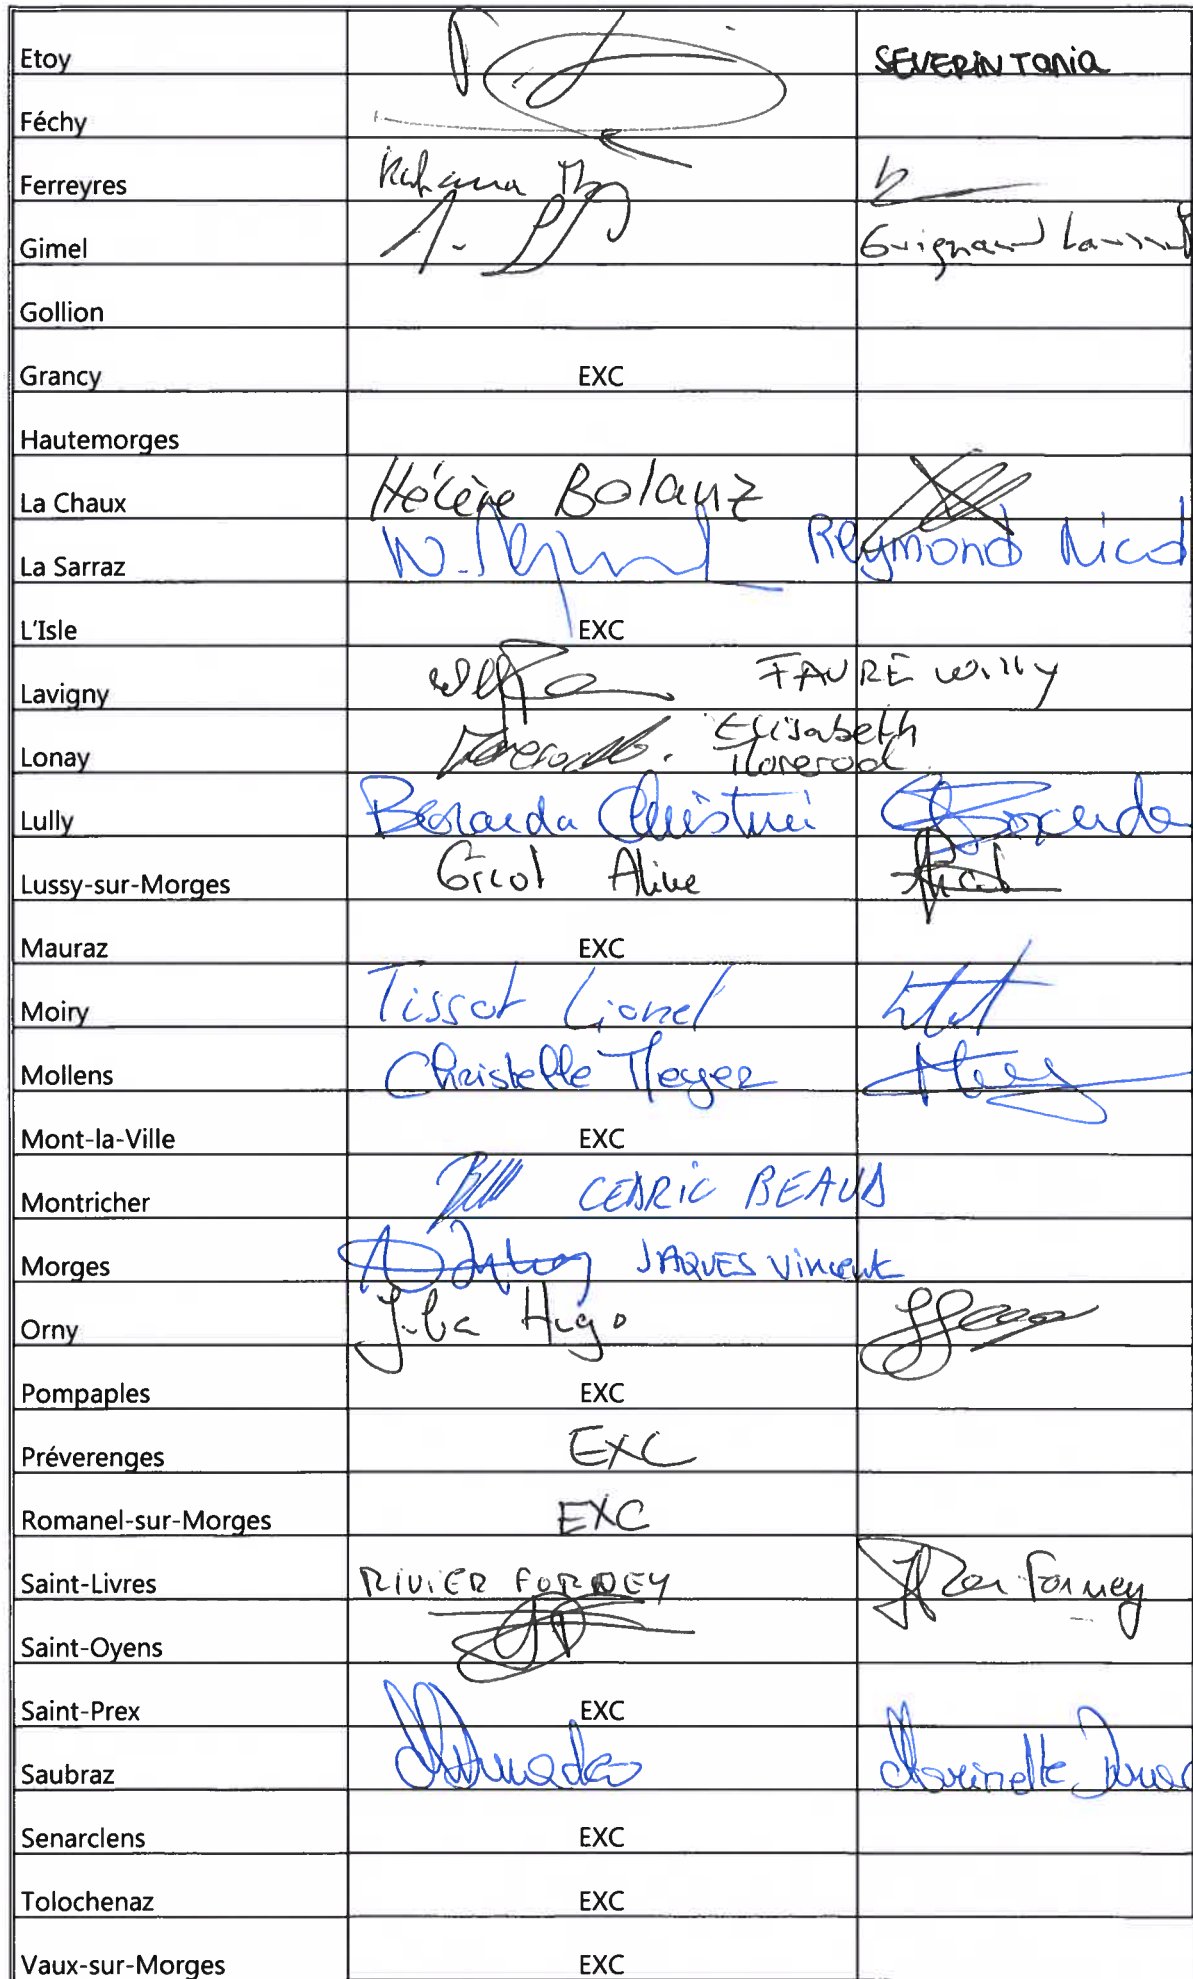 Etoy SEVERIN Tania
Féchy
Ferreyres
Gimel Guignard
Gollion
Grancy EXC
Hautemorges
La Chaux Hélène Bolanz
La Sarraz N. Reymond Nicol
L'Isle EXC
Lavigny FAVRE Willy
Lonay Elisabeth
Morerod
Lully
Lussy-sur-Morges Gicot Aline
Mauraz EXC
Moiry Tissot Lionel
Mollens Christelle Meyer
Mont-la-Ville EXC
Montricher CEDRIC BEAUD
Morges JAQUES Vincent
Orny Hugo
Pompaples EXC
Préverenges EXC
Romanel-sur-Morges EXC
Saint-Livres RIVIER FORNEY Forney
Saint-Oyens
Saint-Prex EXC
Saubraz Marinette
Senarclens EXC
Tolochenaz EXC
Vaux-sur-Morges EXC